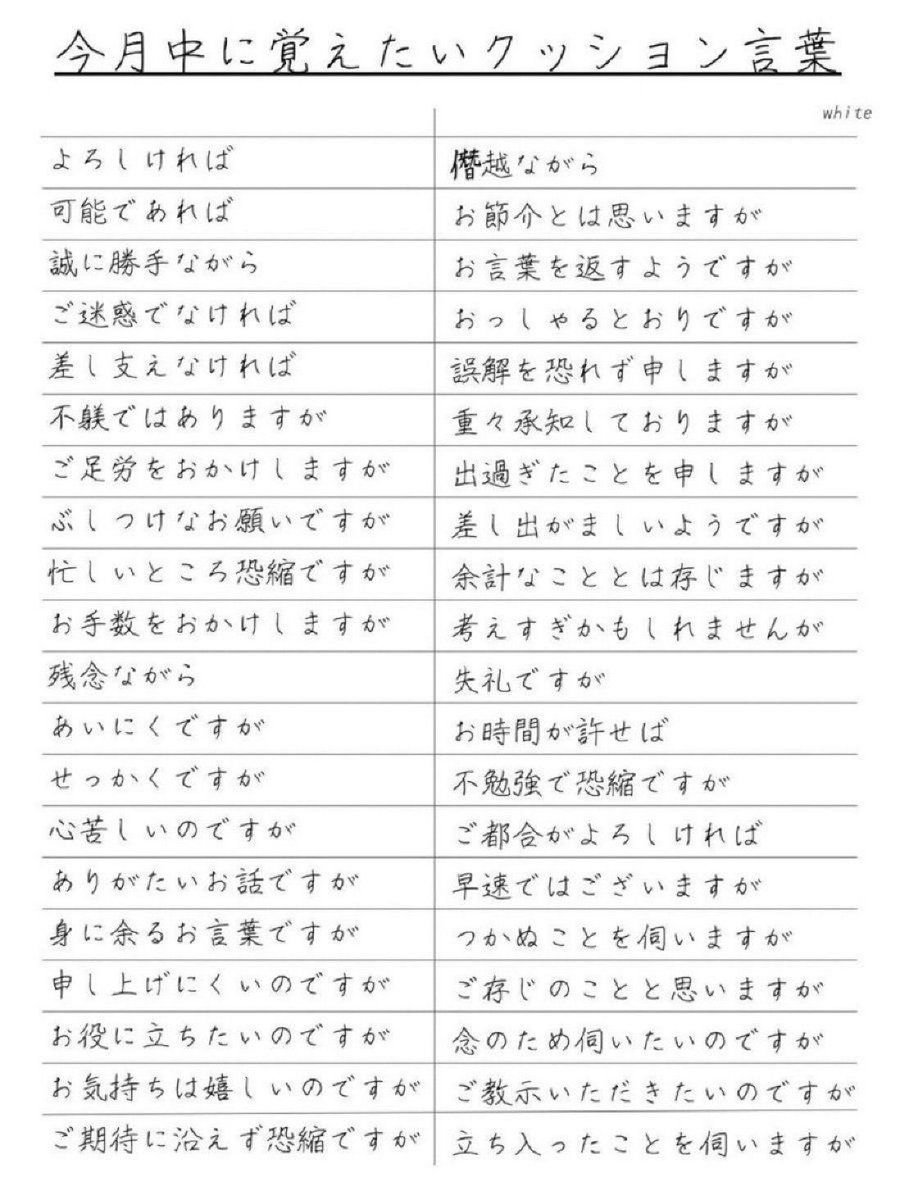 今月中に覚えたいクッション言葉
white
よろしければ
可能であれば
誠に勝手ながら
ご迷惑でなければ
差し支えなければ
不躾ではありますが
ご足労をおかけしますが
ぶしつけなお願いですが
忙しいところ恐縮ですが
お手数をおかけしますが
残念ながら
あいにくですが
せっかくですが
心苦しいのですが
ありがたいお話ですが
身に余るお言葉ですが
申し上げにくいのですが
お役に立ちたいのですが
お気持ちは嬉しいのですが
ご期待に沿えず恐縮ですが
僭越ながら
お節介とは思いますが
お言葉を返すようですが
おっしゃるとおりですが
誤解を恐れず申しますが
重々承知しておりますが
出過ぎたことを申しますが
差し出がましいようですが
余計なこととは存じますが
考えすぎかもしれませんが
失礼ですが
お時間が許せば
不勉強で恐縮ですが
ご都合がよろしければ
早速ではございますが
つかぬことを伺いますが
ご存じのことと思いますが
念のため伺いたいのですが
ご教示いただきたいのですが
立ち入ったことを伺いますが